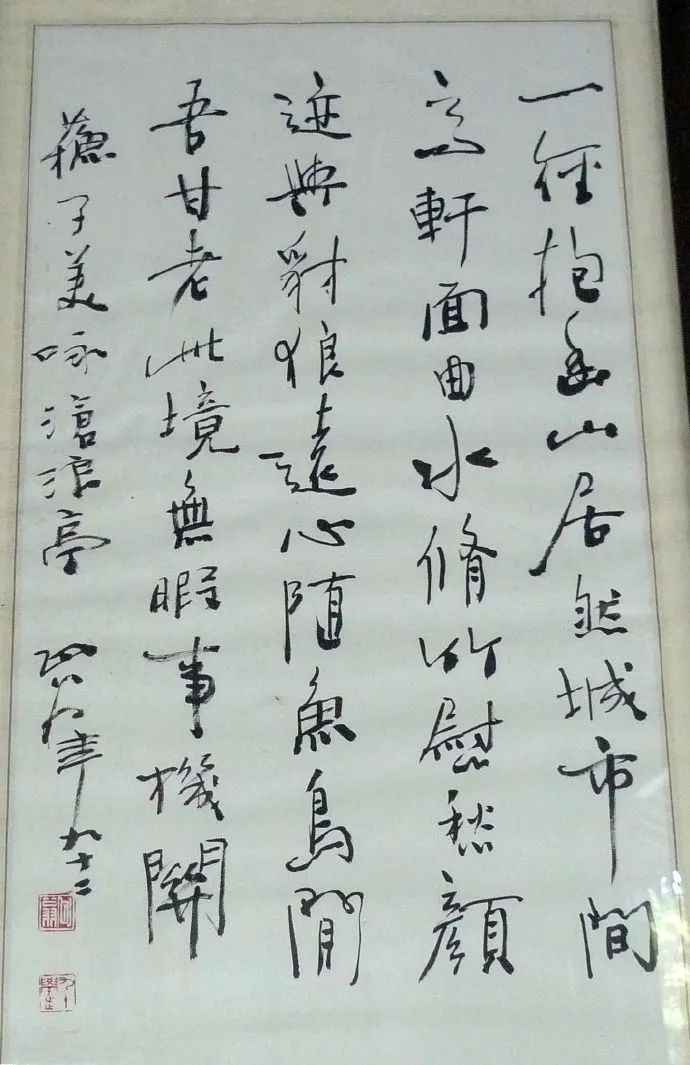 一徑抱幽山居然城市間
高軒面曲水脩竹慰愁顔
迹與豺狼遠心随魚鳥閒
吾甘老此境無暇事機關
蘓子美咏滄浪亭 年九十二